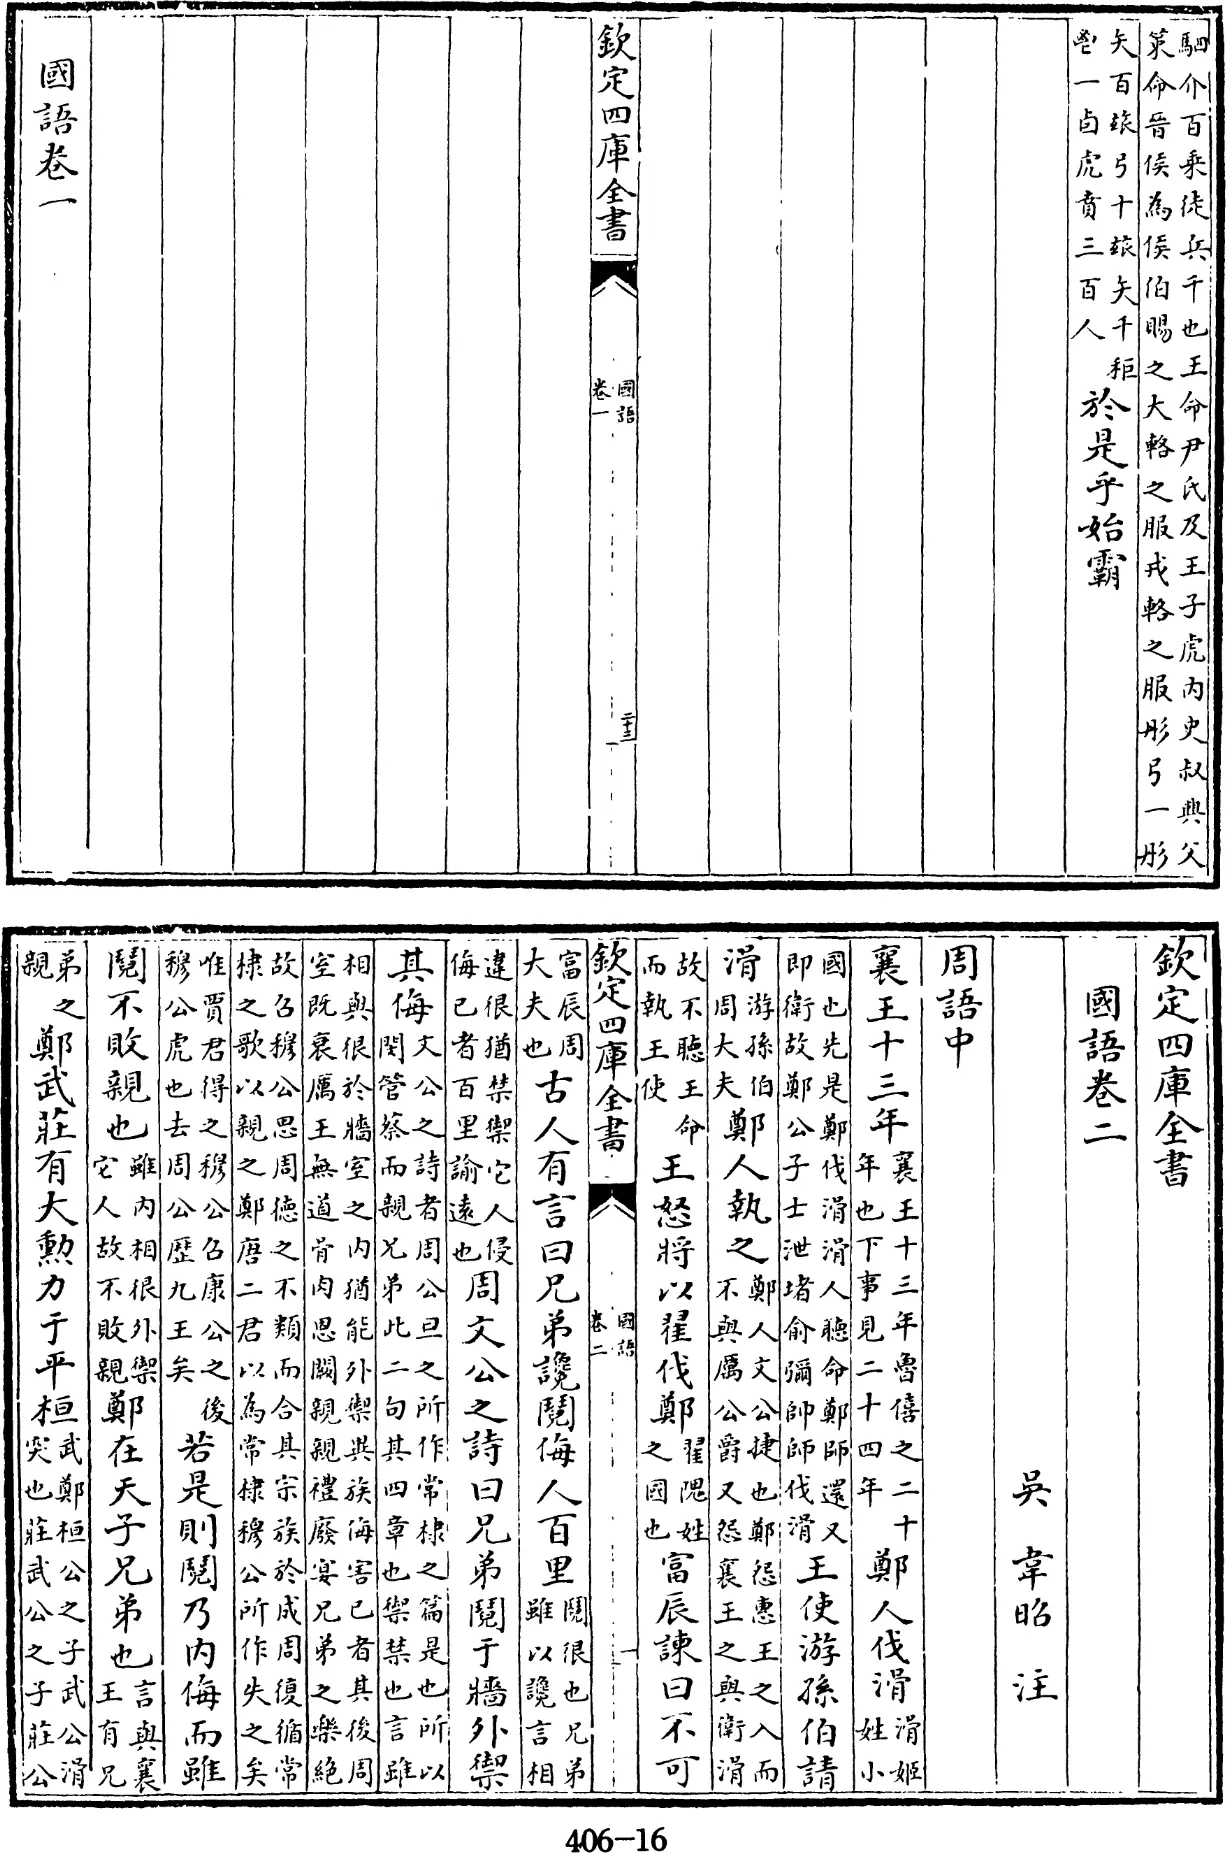 駟介百乘徒兵千也王命尹氏及王子虎内史叔興父
策命晉侯為侯伯賜之大輅之服戎輅之服彤弓一彤
矢百玈弓十玈矢千秬
鬯一卣虎賁三百人
於是乎始霸
欽定四庫全書
國語
卷一
二十三
國語卷一
欽定四庫全書
國語卷二
吳 韋昭 注
周語中
襄王十三年
襄王十三年魯僖之二十
年也下事見二十四年
鄭人伐滑
滑姬
姓小
國也先是鄭伐滑滑人聽命鄭師還又
即衛故鄭公子士泄堵俞彌帥師伐滑
王使游孫伯請
滑
游孫伯
周大夫
鄭人執之
鄭人文公捷也鄭怨惠王之入而
不與厲公爵又怨襄王之與衛滑
故不聽王命
而執王使
王怒將以翟伐鄭
翟隗姓
之國也
富辰諫曰不可
欽定四庫全書
國語
卷二
一
富辰周
大夫也
古人有言曰兄弟讒鬩侮人百里
鬩很也兄弟
雖以讒言相
違很猶禁禦它人侵
侮已者百里諭遠也
周文公之詩曰兄弟鬩于牆外禦
其侮
文公之詩者周公旦之所作常棣之篇是也所以
閔管蔡而親兄弟此二句其四章也禦禁也言雖
相與很於牆室之内猶能外禦異族侮害已者其後周
室既衰厲王無道骨肉恩闕親親禮廢宴兄弟之樂絶
故召穆公思周德之不類而合其宗族於成周復循常
棣之歌以親之鄭唐二君以為常棣穆公所作失之矣
唯賈君得之穆公召康公之後
穆公虎也去周公歷九王矣
若是則鬩乃内侮而雖
鬩不敗親也
雖内相很外禦
它人故不敗親
鄭在天子兄弟也
言與襄
王有兄
弟之
親
鄭武莊有大勲力于平桓
武鄭桓公之子武公滑
突也莊武公之子莊公
406-16